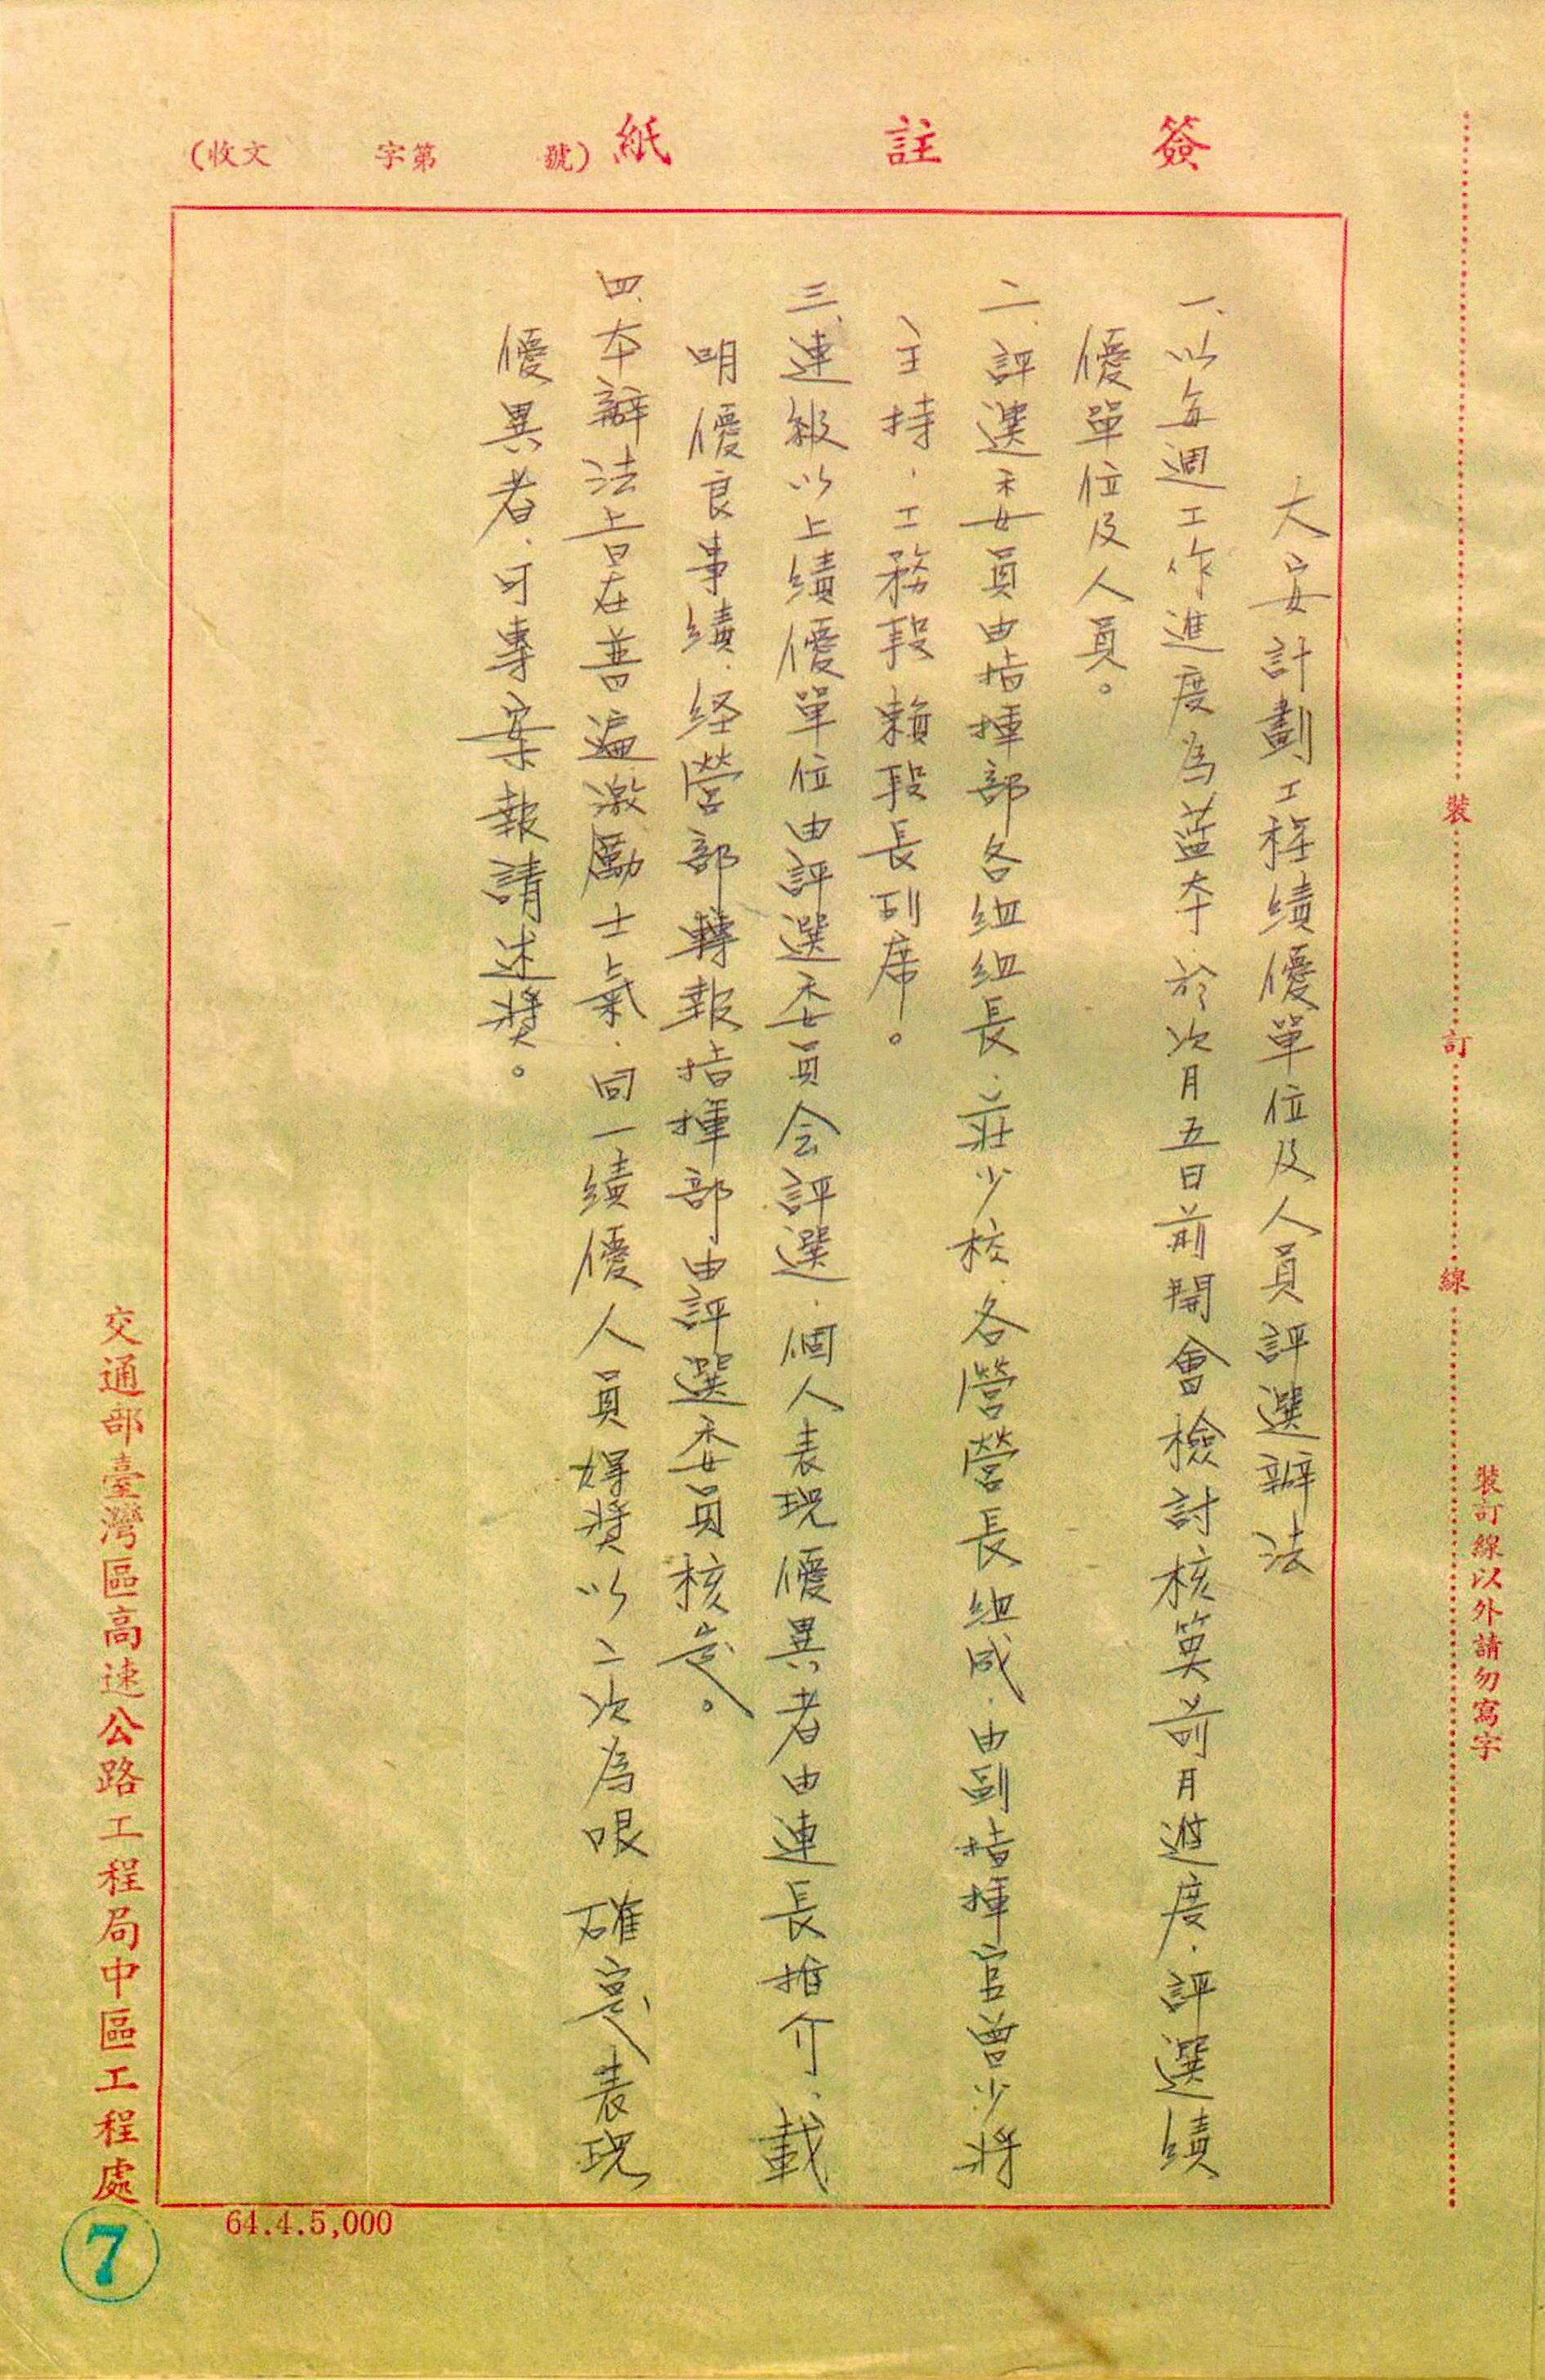 簽註紙
(收文　字第　號)
大安計劃工程績優單位及人員評選辦法
一、以每週工作進度為藍本，於次月五日前開會檢討核算前月進度，評選績
優單位及人員。
二、評選委員由指揮部各組組長，莊少校，各營營長組成，由副指揮官曾少將
主持，工務段賴段長列席。
三、連級以上績優單位由評選委員会評選，個人表現優異者由連長推介，載
明優良事績，経營部轉報指揮部由評選委員核定。
四、本辦法旨在普遍激勵士氣，同一績優人員得獎以二次為限，確實表現
優異者，可專案報請述獎。
裝訂線
裝訂線以外請勿寫字
交通部臺灣區高速公路工程局中區工程處
64.4.5,000
7